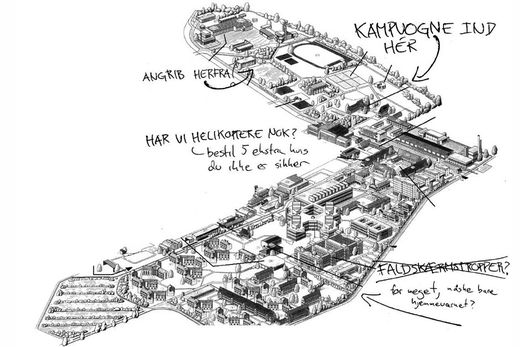 KAMPVOGNE IND
HÉR
ANGRIB HERFRA
HAR VI HELIKOPTERE NOK?
bestil 5 ekstra hvis
du ikke er sikker
FALDSKÆRMSTROPPER?
for meget, måske bare
hjemmeværnet?